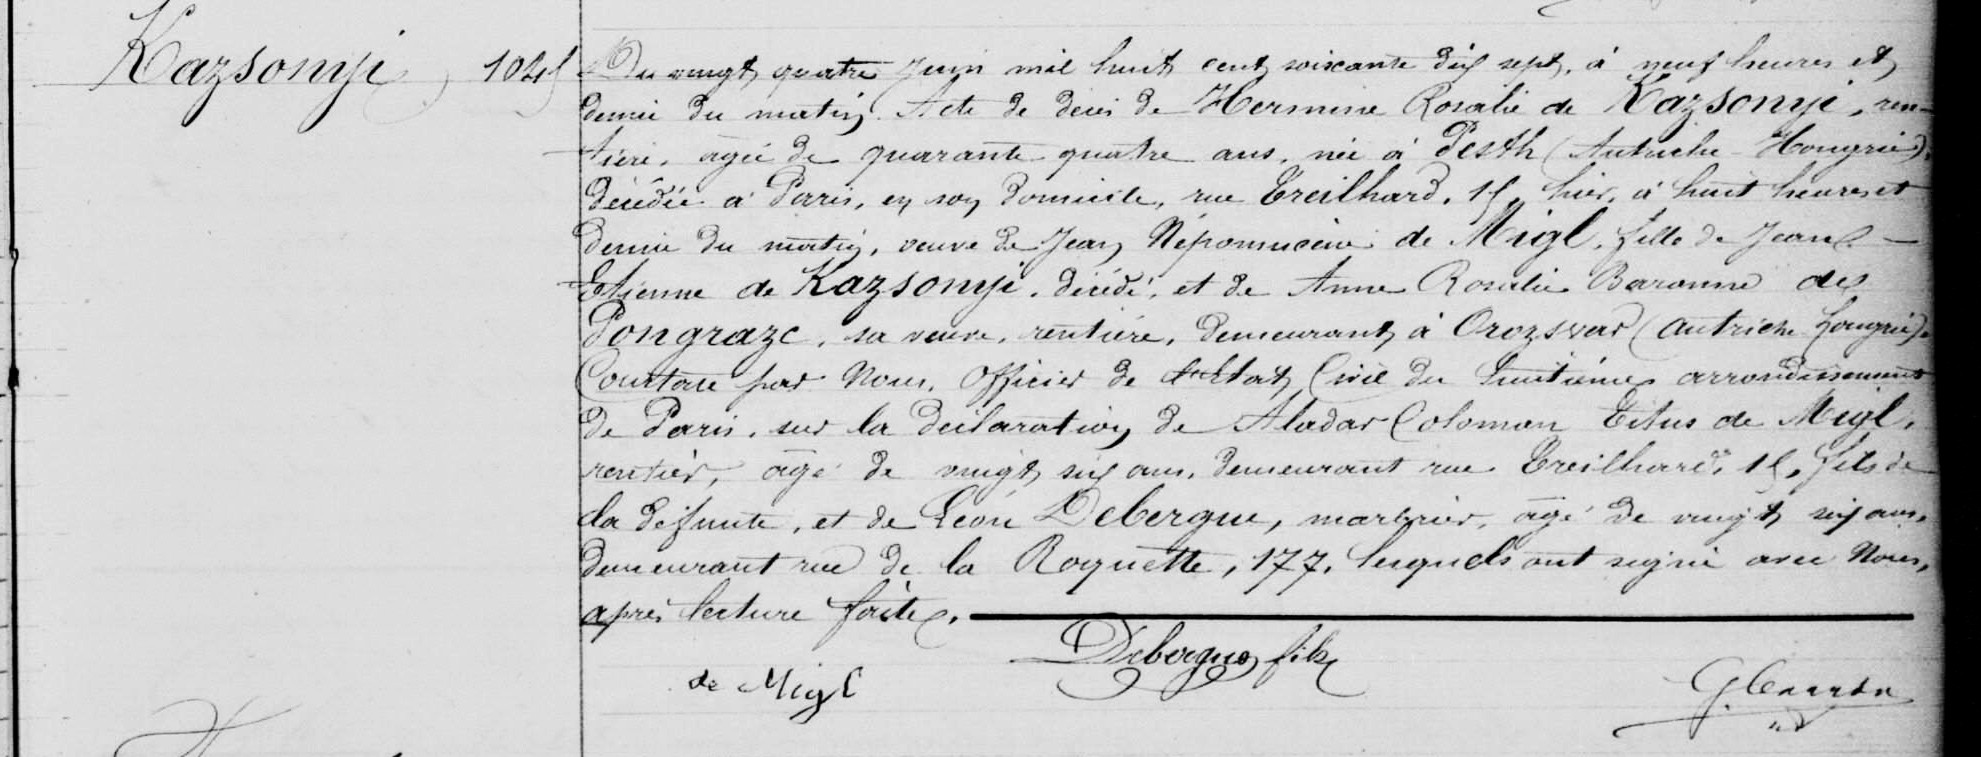 Kazsonyi 1045
Du vingt quatre Juin mil huit cent soixante dix sept, à neuf heures et
demie du matin. Acte de décès de Hermine Rosalie de Kazsonyi, ren-
tière, âgée de quarante quatre ans, née à Pesth (Autriche-Hongrie),
décédée à Paris, en son domicile, rue Treilhard, 15, hier, à huit heures et
demie du matin, veuve de Jean Népomucène de Migl, fille de Jean
Etienne de Kazsonyi, décédé, et de Anne Rosalie Baronne de
Pongrazc, sa veuve, rentière, demeurant à Orozsvar (Autriche hongrie).
Constaté par Nous, Officier de l'Etat Civil du huitième arrondissement
de Paris, sur la déclaration de Aladar Coloman Titus de Migl,
rentier, âgé de vingt six ans, demeurant rue Treilhard, 15, fils de
la défunte, et de Léon Debergue, marbrier, âgé de vingt six ans,
demeurant rue de la Roquette, 177, lesquels ont signé avec Nous,
après lecture faite.
de Migl Debergue fils